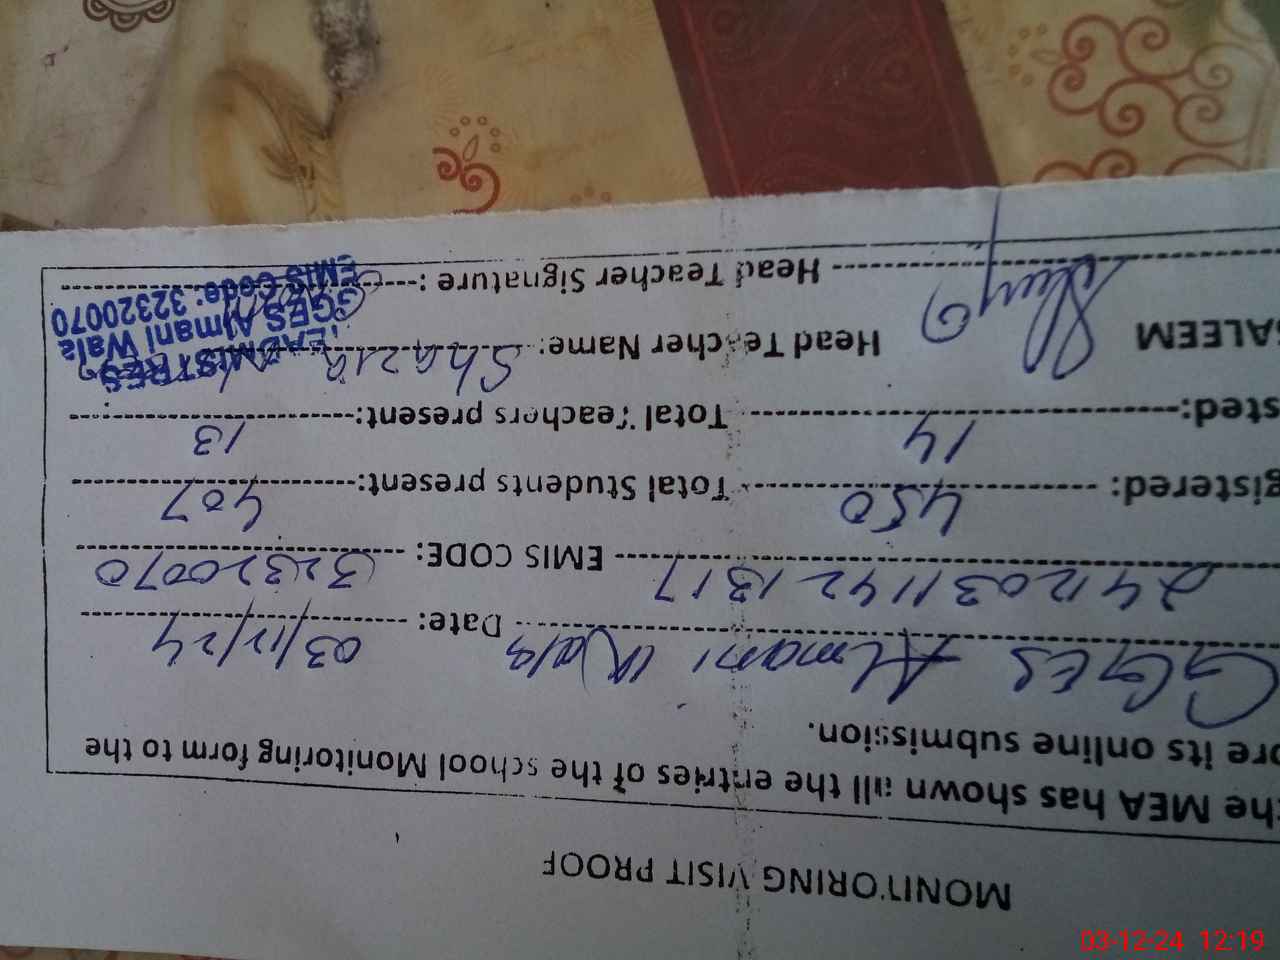 MONITORING VISIT PROOF
the MEA has shown all the entries of the school Monitoring form to the
ore its online submission.
GGES Almani Wala Date: 03/12/24
2412031142 1317 EMIS CODE: 32320070
gistered: 450 Total Students present: 407
sted: 14 Total Teachers present: 13
ALEEM Head Teacher Name: Shazia
Head Teacher Signature:
HEADMISTRES
GGES Almani Wala
EMIS Code: 32320070
03-12-24 12:19